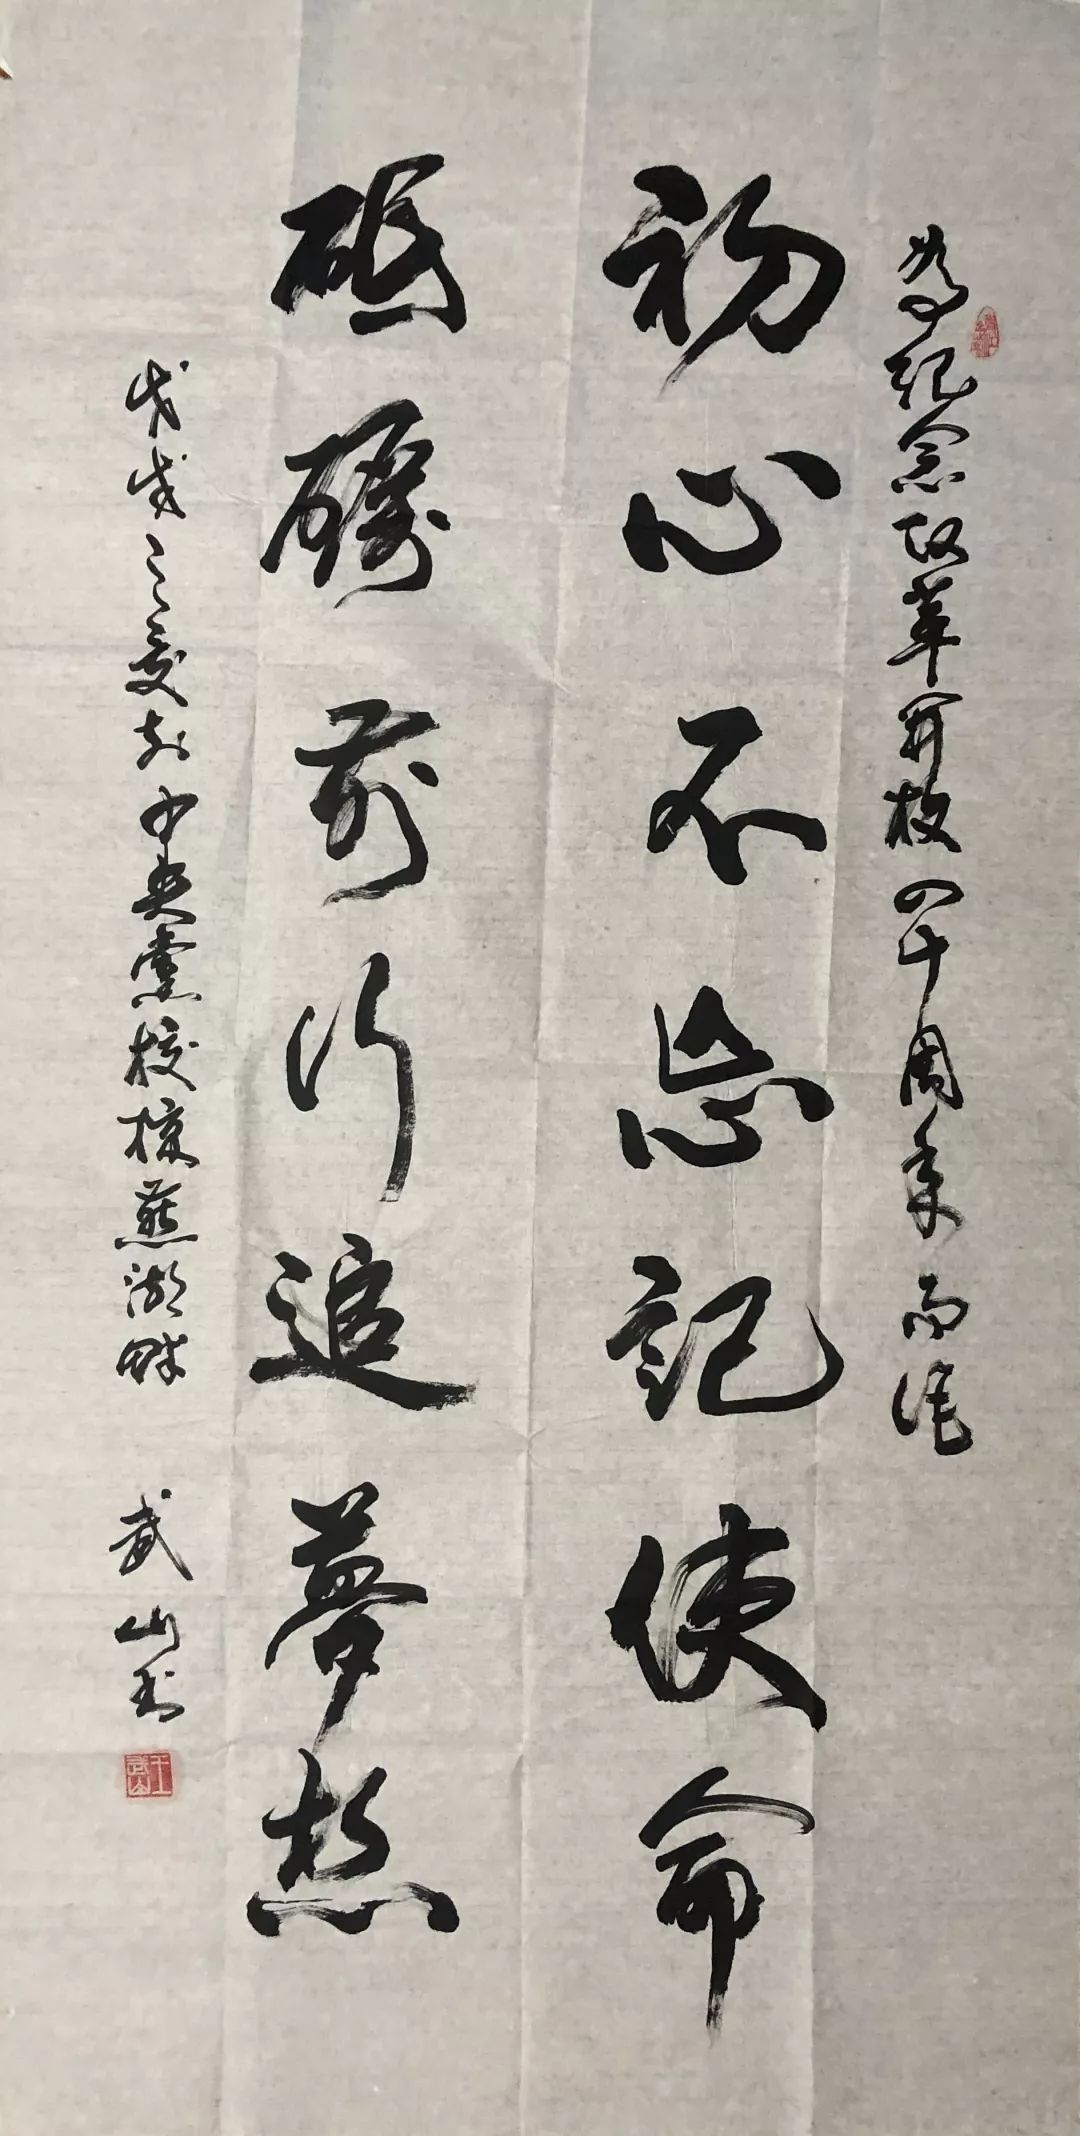 为纪念改革开放四十周年而作
初心不忘记使命
砥砺前行追夢想
戊戌之夏于中央党校掠燕湖畔
武山书
王武山